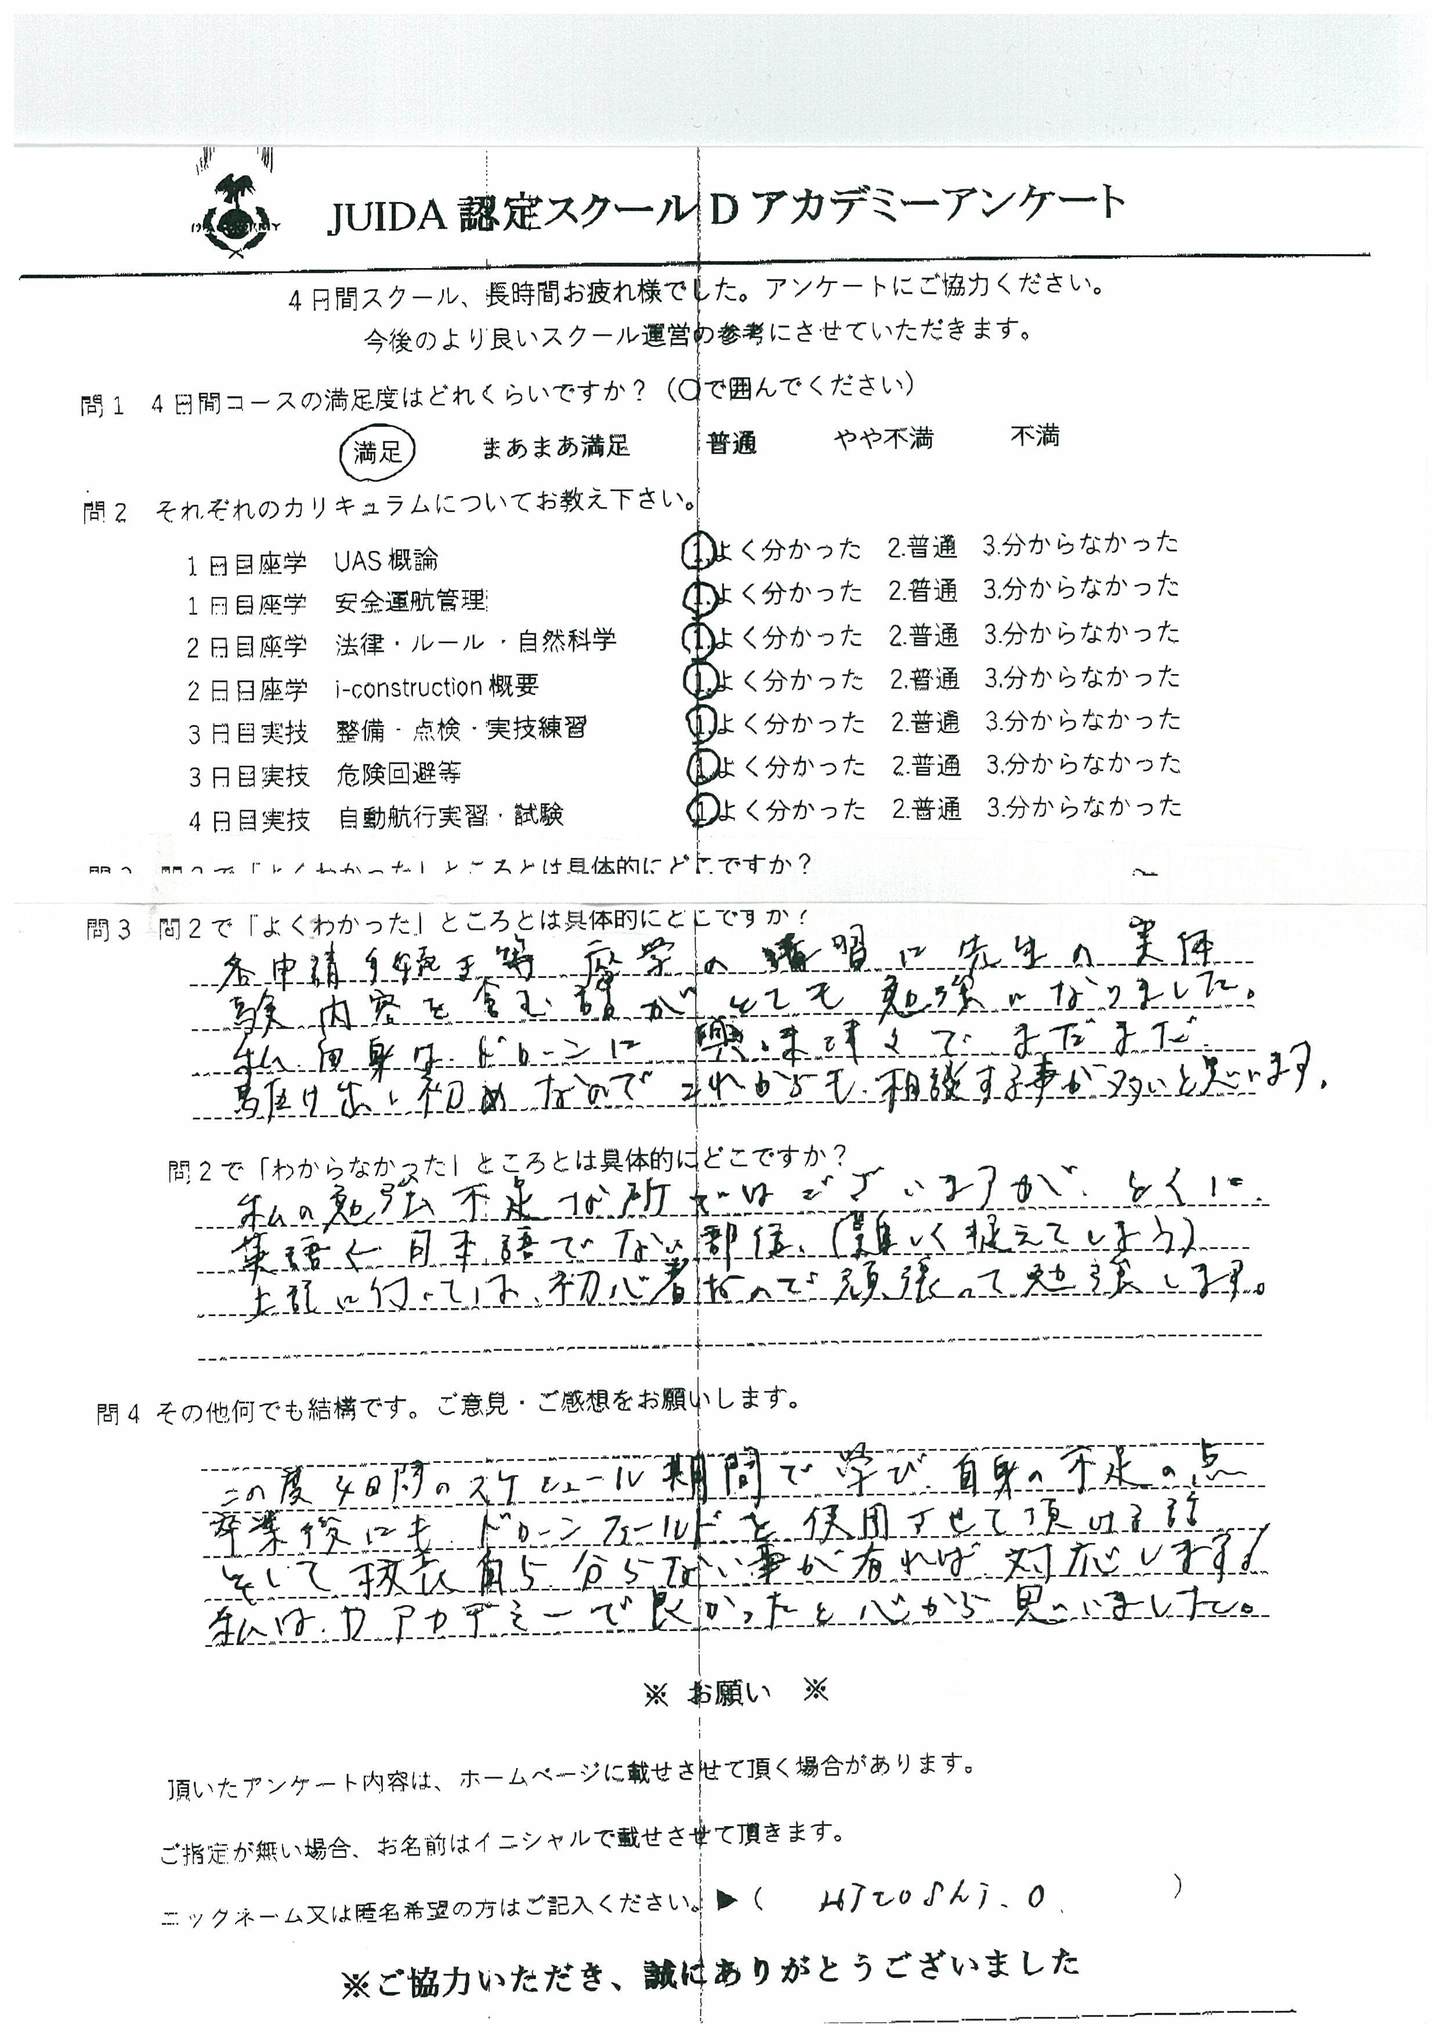 JUIDA 認定スクール D アカデミーアンケート
4日間スクール、長時間お疲れ様でした。アンケートにご協力ください。
今後のより良いスクール運営の参考にさせていただきます。
問1 4日間コースの満足度はどれくらいですか？（〇で囲んでください）
満足 まあまあ満足 普通 やや不満 不満
問2 それぞれのカリキュラムについてお教え下さい。
1日目座学 UAS概論 1.よく分かった 2.普通 3.分からなかった
1日目座学 安全運航管理 1.よく分かった 2.普通 3.分からなかった
2日目座学 法律・ルール・自然科学 1.よく分かった 2.普通 3.分からなかった
2日目座学 i-construction概要 1.よく分かった 2.普通 3.分からなかった
3日目実技 整備・点検・実技練習 1.よく分かった 2.普通 3.分からなかった
3日目実技 危険回避等 1.よく分かった 2.普通 3.分からなかった
4日目実技 自動航行実習・試験 1.よく分かった 2.普通 3.分からなかった
問3 問2で「よくわかった」ところとは具体的にどこですか？
問3 問2で「よくわかった」ところとは具体的にどこですか？
各申請手続き等 座学の講習に先生の実体
験内容を含む話がとても勉強になりました。
私自身はドローンに興味津々で まだまだ
駆け出し初めなのでこれからも相談する事が多いと思います。
問2で「わからなかった」ところとは具体的にどこですか？
私の勉強不足な所ではございますが、とくに
英語く日本語でない部位、(難しく捉えてしまう)
上記に付いては、初心者なので頑張って勉強します。
問4 その他何でも結構です。ご意見・ご感想をお願いします。
この度4日間のスケジュール期間で学び 自身の不足の点
卒業後にも ドローンフィールドを使用させて頂ける話
そして 自ら分らない事が有れば対応します!
私は Dアカデミーで良かったと心から思いました。
※ お願い ※
頂いたアンケート内容は、ホームページに載せさせて頂く場合があります。
ご指定が無い場合、お名前はイニシャルで載せさせて頂きます。
ニックネーム又は匿名希望の方はご記入ください。▶（ HIROSHI.O ）
※ご協力いただき、誠にありがとうございました